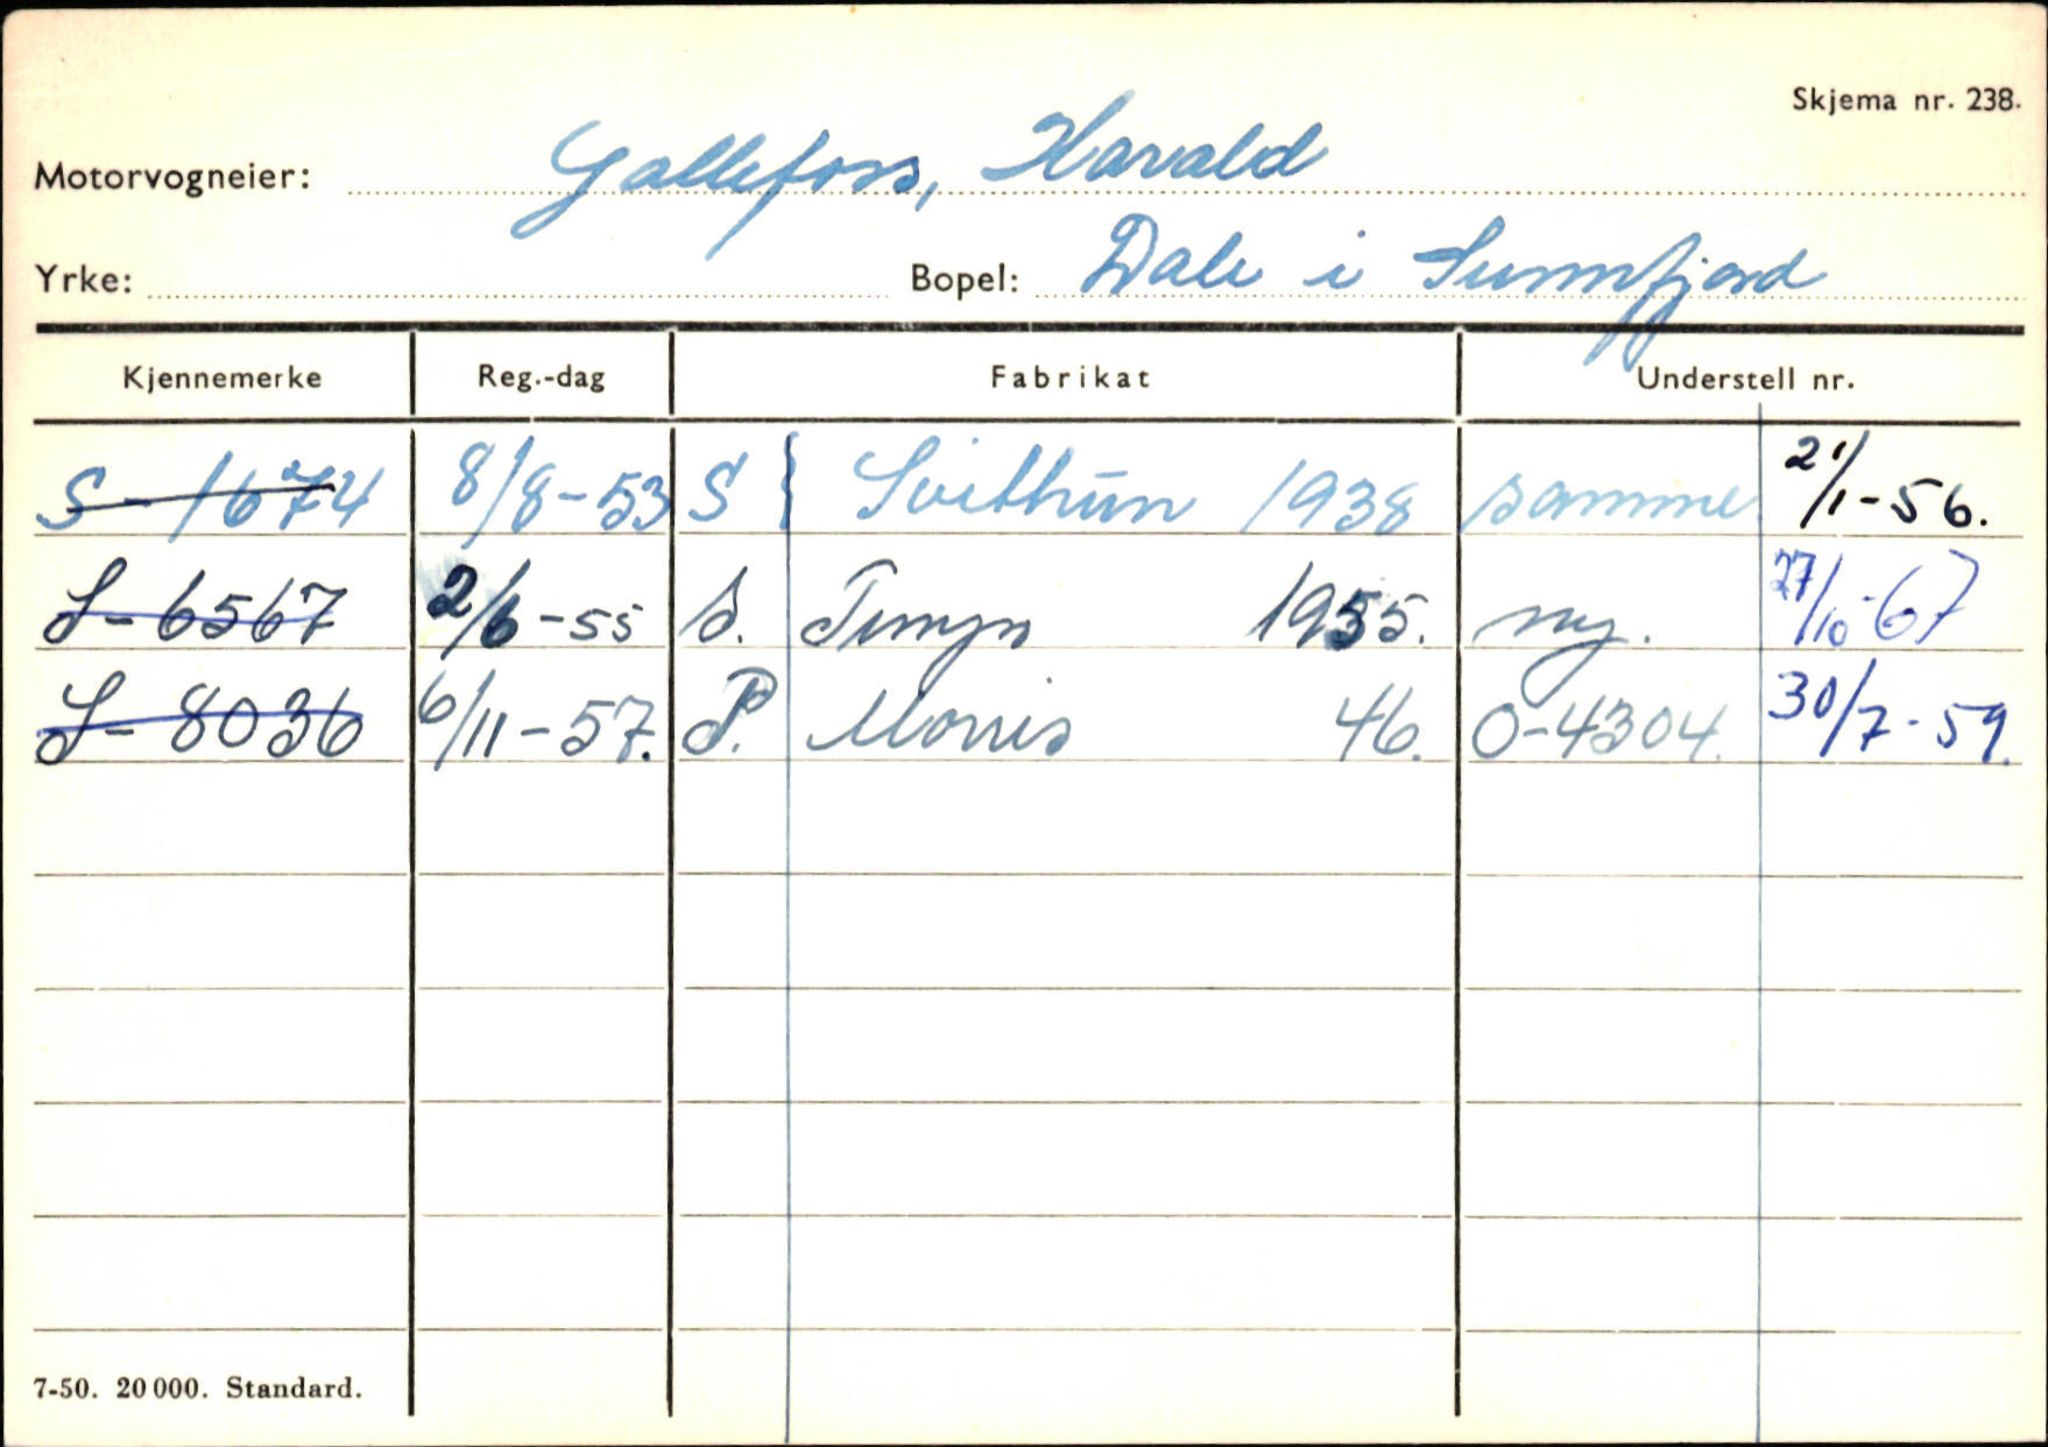 Skjema nr. 238.
Motorvogneier: Gallefoss, Harald
Yrke: Bopel: Dale i Sunnfjord
Kjennemerke Reg.-dag Fabrikat Understell nr.
S-1674 8/8-53 S Svithun 1938 samme 21/1-56.
S-6567 2/6-55 S. Tempo 1955. ny. 27/10-67
S-8036 6/11-57. P. Morris 46. O-4304. 30/7-59.
7-50. 20 000. Standard.